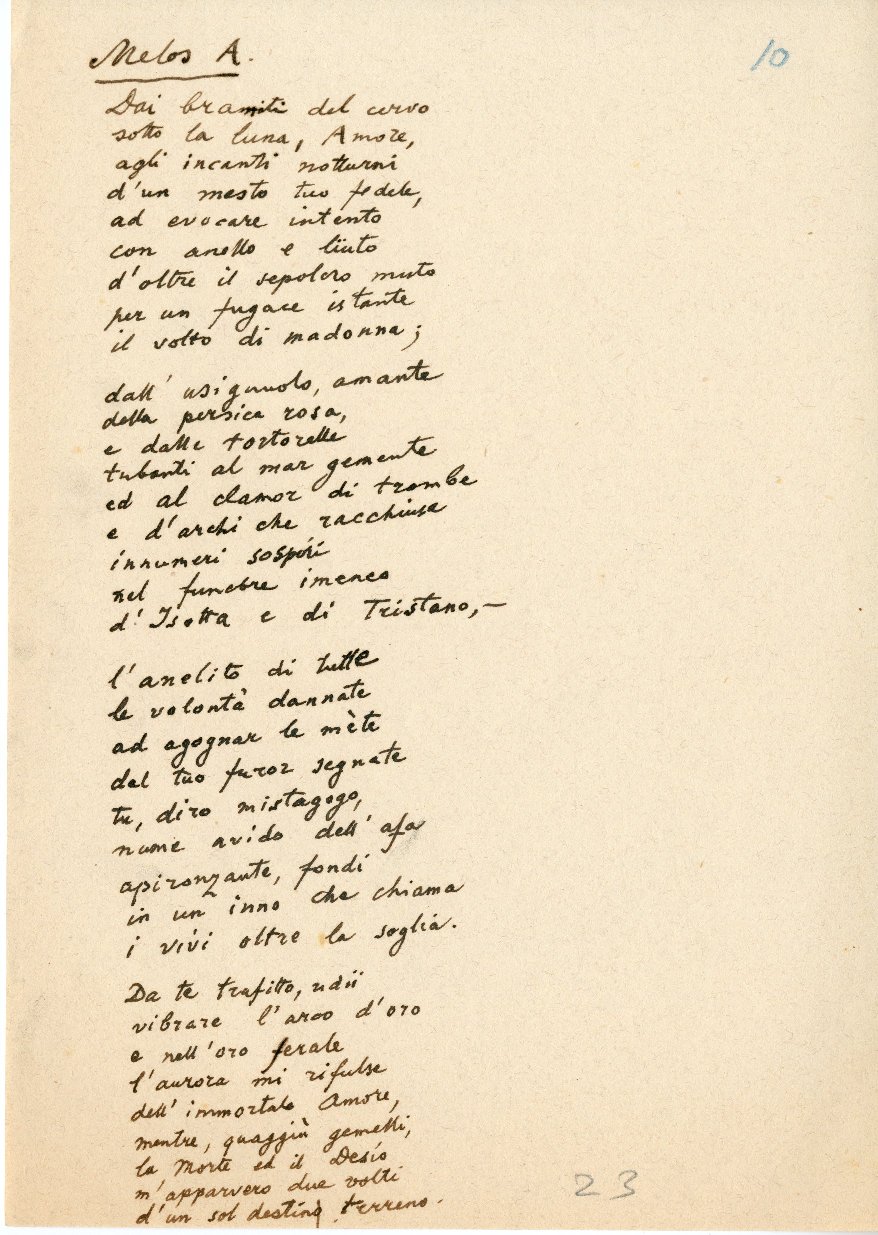 Melos A.
10
Dai bramiti del cervo
sotto la luna, Amore,
agli incanti notturni
d'un mesto tuo fedele,
ad evocare intento
con anello e lïuto
d'oltre il sepolcro muto
per un fugace istante
il volto di madonna;
dall' usignuolo, amante
della persica rosa,
e dalle tortorelle
tubanti al mar gemente
ed al clamor di trombe
e d'archi che racchiuse
innumeri sospiri
nel funebre imeneo
d'Isotta e di Tristano,—
l'anelito di tutte
le volontà dannate
ad agognar le mète
dal tuo furor segnate
tu, diro mistagogo,
nume avido dell' afa
apironzante, fondi
in un inno che chiama
i vivi oltre la soglia.
Da te trafitto, udii
vibrare l'arco d'oro
e nell'oro ferale
l'aurora mi rifulse
dell' immortale Amore,
mentre, quaggiù gemelli,
la Morte ed il Desio
m'apparvero due volti
d'un sol destino terreno.
23